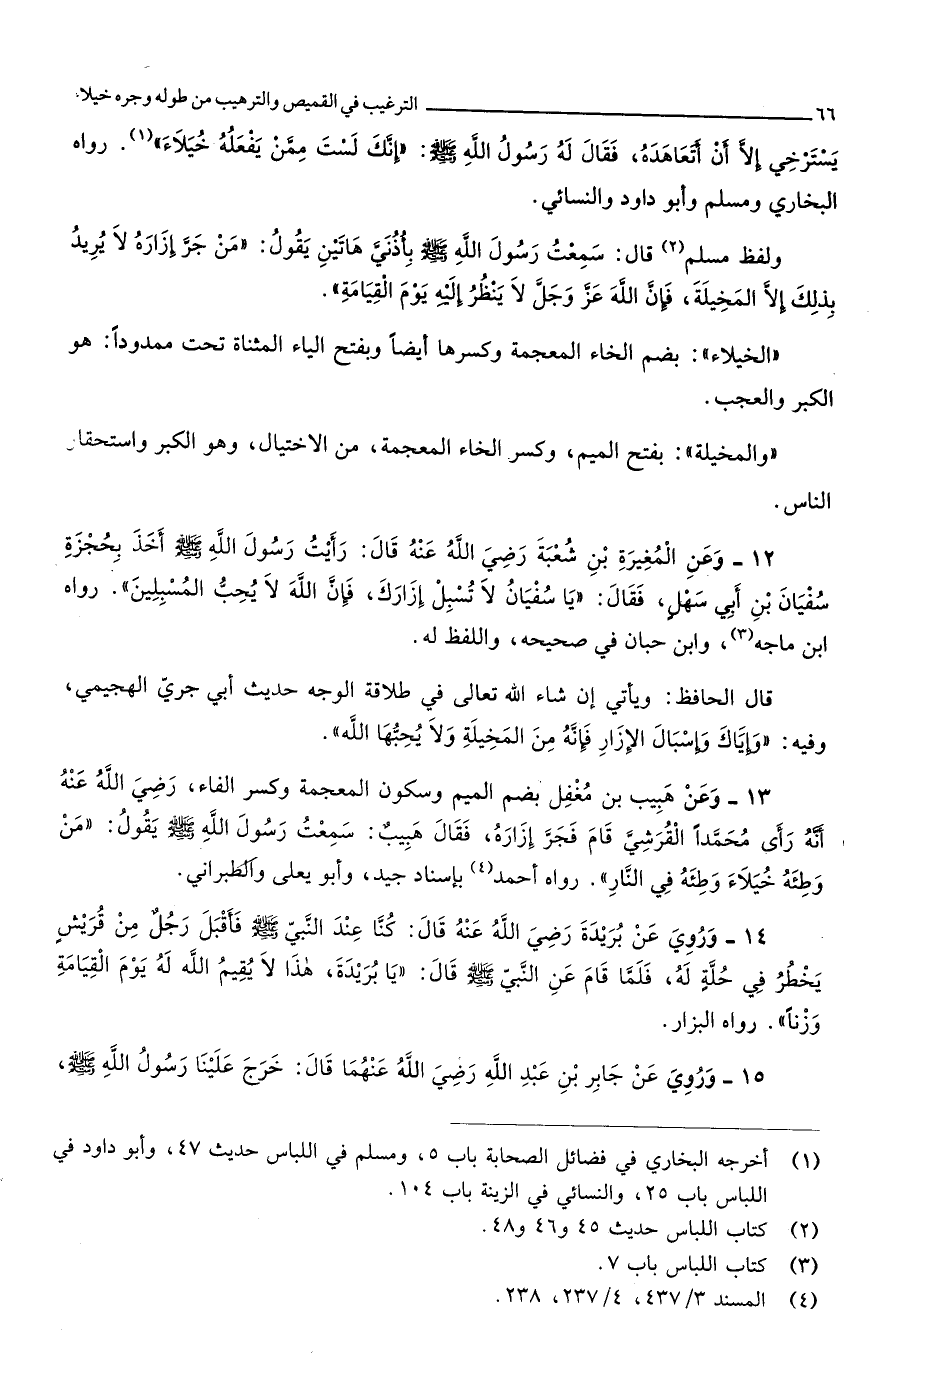 ٦٦ الترغيب في القميص والترهيب من طوله وجره خيلاء
يَسْتَرْخِي إِلاَّ أَنْ أَتَعَاهَدَهُ، فَقَالَ لَهُ رَسُولُ اللَّهِ ﷺ: «إِنَّكَ لَسْتَ مِمَّنْ يَفْعَلُهُ خُيَلاَءَ»(١). رواه
البخاري ومسلم وأبو داود والنسائي.
ولفظ مسلم(٢) قال: سَمِعْتُ رَسُولَ اللَّهِ ﷺ بِأُذُنَيَّ هَاتَيْنِ يَقُولُ: «مَنْ جَرَّ إِزَارَهُ لاَ يُرِيدُ
بِذلِكَ إِلاَّ المَخِيلَةَ، فَإِنَّ اللَّهَ عَزَّ وَجَلَّ لاَ يَنْظُرُ إِلَيْهِ يَوْمَ الْقِيَامَةِ».
«الخيلاء»: بضم الخاء المعجمة وكسرها أيضاً وبفتح الياء المثناة تحت ممدوداً: هو
الكبر والعجب.
«والمخيلة»: بفتح الميم، وكسر الخاء المعجمة، من الاختيال، وهو الكبر واستحقار
الناس.
١٢ ـ وَعَنِ الْمُغِيرَةِ بْنِ شُعْبَةَ رَضِيَ اللَّهُ عَنْهُ قَالَ: رَأَيْتُ رَسُولَ اللَّهِ ﷺ أَخَذَ بِحُجْزَةِ
سُفْيَانَ بْنِ أَبِي سَهْلٍ، فَقَالَ: «يَا سُفْيَانُ لاَ تُسْبِلْ إِزَارَكَ، فَإِنَّ اللَّهَ لاَ يُحِبُّ المُسْبِلِينَ». رواه
ابن ماجه(٣)، وابن حبان في صحيحه، واللفظ له.
قال الحافظ: ويأتي إن شاء الله تعالى في طلاقة الوجه حديث أبي جريّ الهجيمي،
وفيه: «وَإِيَّاكَ وَإِسْبَالَ الإِزَارِ فَإِنَّهُ مِنَ المَخِيلَةِ وَلاَ يُحِبُّهَا الله».
١٣ ـ وَعَنْ هَبِيب بن مُغْفِل بضم الميم وسكون المعجمة وكسر الفاء، رَضِيَ اللَّهُ عَنْهُ
أَنَّهُ رَأَى مُحَمَّداً الْقُرَشِيَّ قَامَ فَجَرَّ إِزَارَهُ، فَقَالَ هَبِيبٌ: سَمِعْتُ رَسُولَ اللَّهِ ﷺ يَقُولُ: «مَنْ
وَطِئَهُ خُيَلاَءَ وَطِئَهُ فِي النَّارِ». رواه أحمد(٤) بإسناد جيد، وأبو يعلى والطبراني.
١٤ ـ وَرُوِيَ عَنْ بُرَيْدَةَ رَضِيَ اللَّهُ عَنْهُ قَالَ: كُنَّا عِنْدَ النَّبِيِّ ﷺ فَأَقْبَلَ رَجُلٌ مِنْ قُرَيْشٍ
يَخْطُرُ فِي حُلَّةٍ لَهُ، فَلَمَّا قَامَ عَنِ النَّبِيِّ ﷺ قَالَ: «يَا بُرَيْدَةَ، هٰذَا لاَ يُقِيمُ الله لَهُ يَوْمَ الْقِيَامَةِ
وَزْناً». رواه البزار.
١٥ ـ وَرُوِيَ عَنْ جَابِرِ بْنِ عَبْدِ اللَّهِ رَضِيَ اللَّهُ عَنْهُمَا قَالَ: خَرَجَ عَلَيْنَا رَسُولُ اللَّهِ ﷺ،
(١) أخرجه البخاري في فضائل الصحابة باب ٥، ومسلم في اللباس حديث ٤٧، وأبو داود في
اللباس باب ٢٥، والنسائي في الزينة باب ١٠٤.
(٢) كتاب اللباس حديث ٤٥ و٤٦ و٤٨.
(٣) كتاب اللباس باب ٧.
(٤) المسند ٤٣٧/٣، ٢٣٧/٤، ٢٣٨.